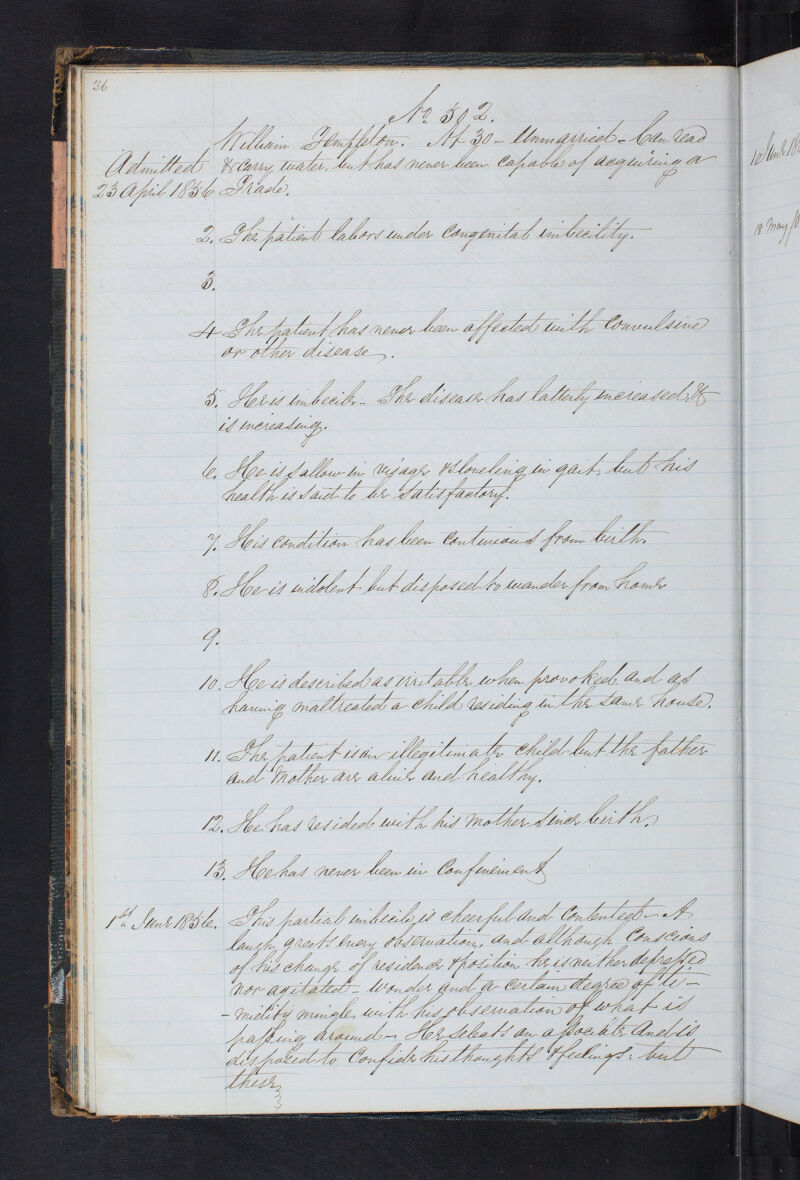 36
No 502.
William Templeton. Æt 30 - Unmarried - Can read
Admitted & carry water, but has never been capable of acquiring a
23 April 1856 Trade.
2. The patient labors under Congenital imbecility.
3.
4 The patient has never been affected with Convulsive
or other disease.
5. He is imbecile - The disease has latterly increased, &
is increasing.
6. He is sallow in visage & slouching in gait, but his
health is said to be satisfactory.
7. His condition has been continuous from birth.
8. He is indolent but disposed to wander from home
9.
10. He is described as irritable when provoked and as
having maltreated a child residing in the same house.
11. The patient is an illegitimate child but the father
and Mother are alive and healthy.
12. He has resided with his Mother since birth.
13. He has never been in Confinement
1st June 1856. This partial imbecile is cheerful and Contented - A
laugh greets every observation, and although Conscious
of his change of residence & position he is neither depressed
nor agitated - Wonder and a certain degree of ti-
-midity mingle with his observation of what is
passing around - He selects an associate and is
disposed to Confide his thoughts & feelings: but
these